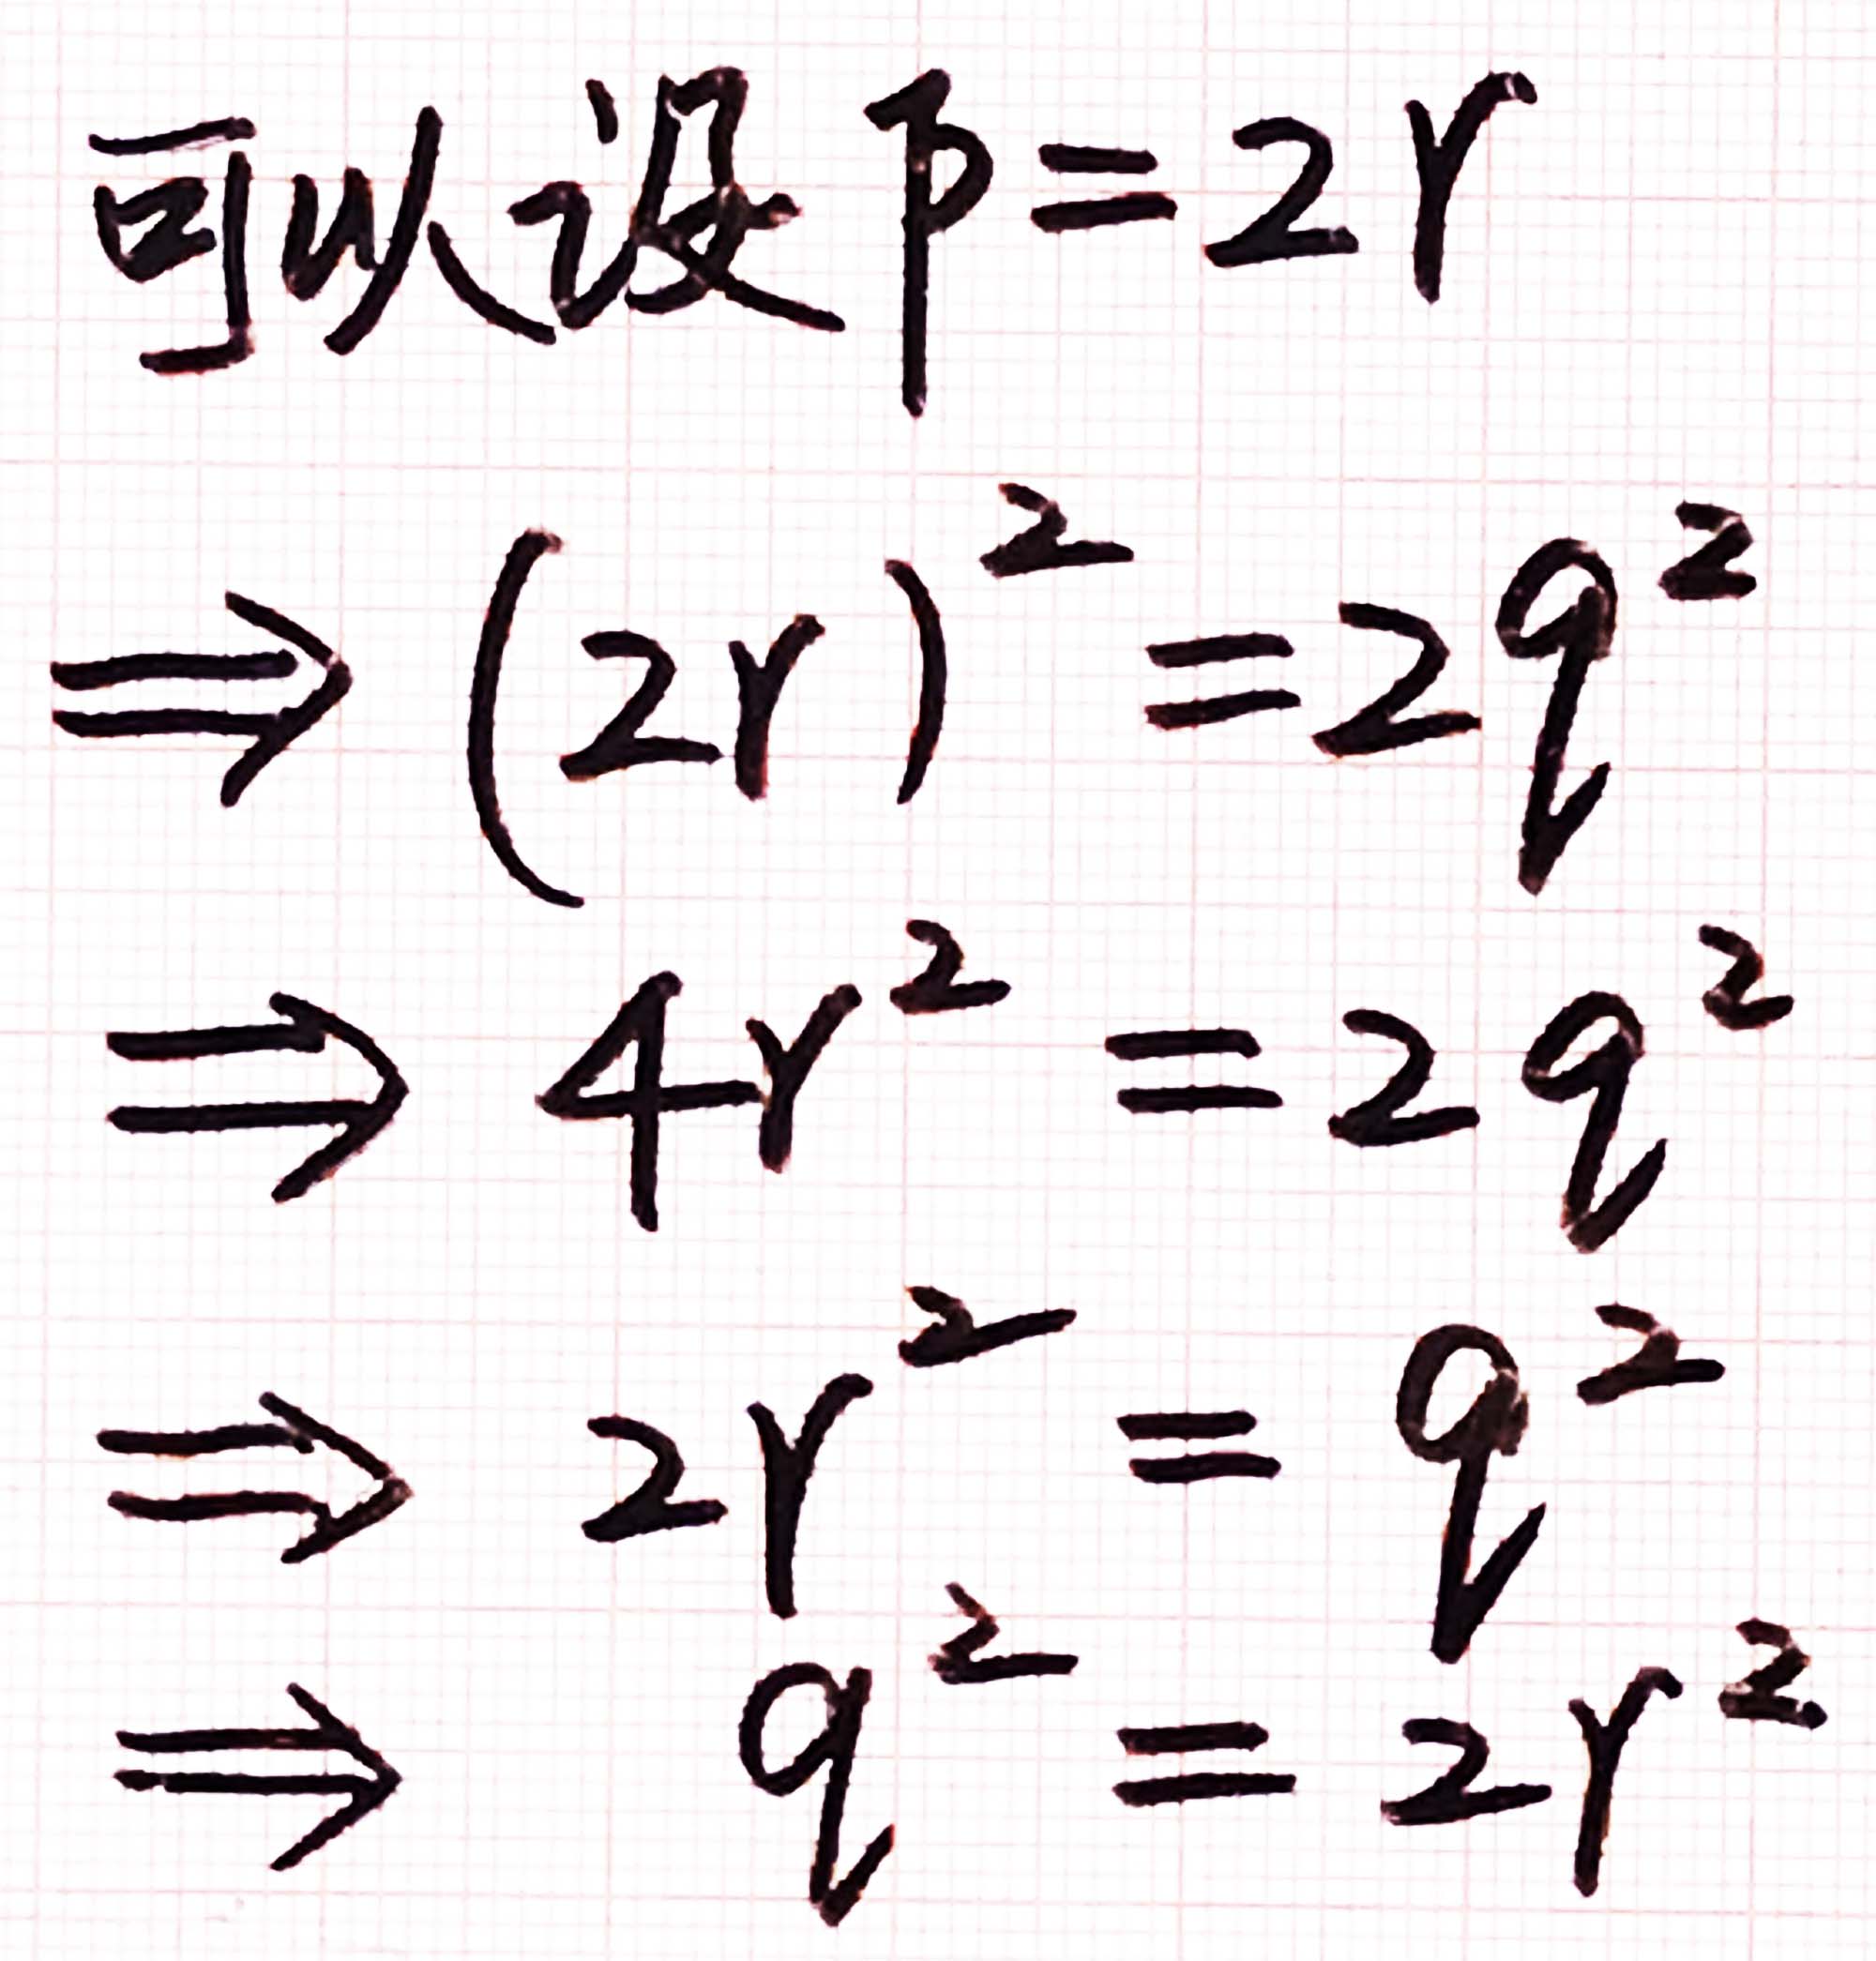 可以设 p=2r
⇒ (2r)² = 2q²
⇒ 4r² = 2q²
⇒ 2r² = q²
⇒ q² = 2r²